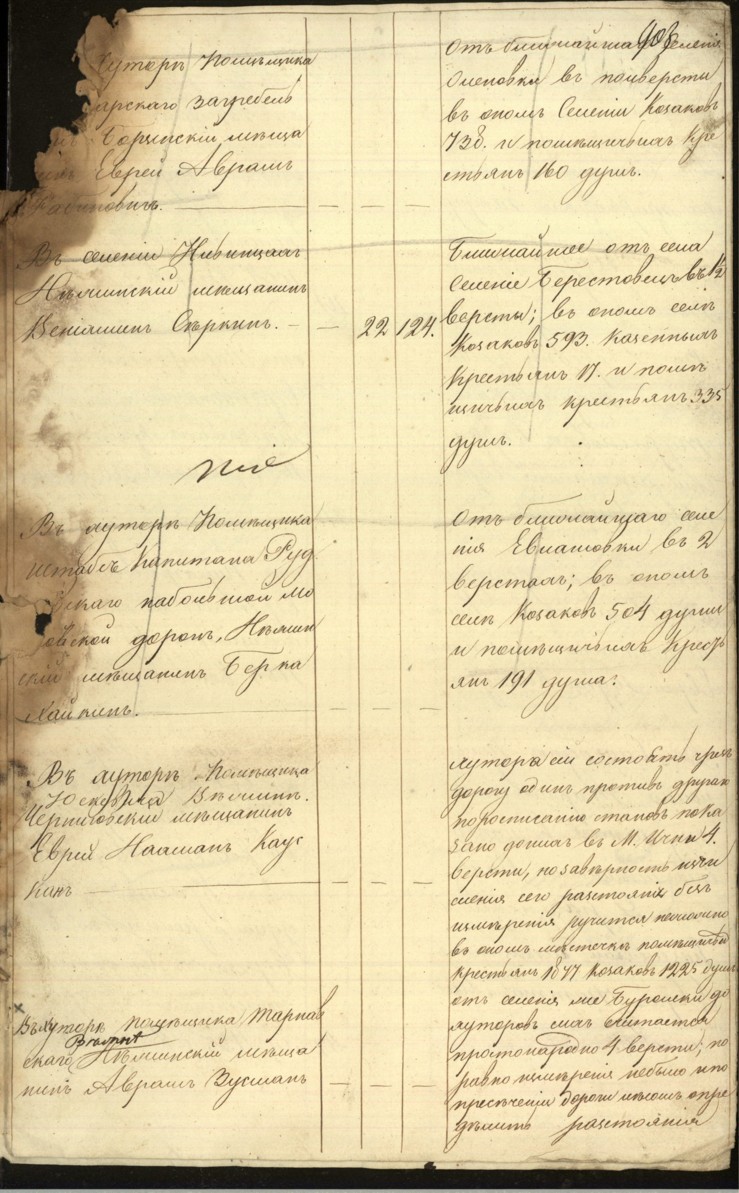 408
хуторѣ Помѣщика
арскаго Загребель
Борзнскій мѣща
нинъ Еврей Аврамъ
Рабиновичъ.
Отъ ближайшаго селенія
Оленовки въ полверсты
въ ономъ Селеніи Козаковъ
738. и помѣщичьихъ кре
стьянъ 160 душъ.
Въ селеніи
Нѣжинскій мѣщанинъ
Веніяминъ Сѣркинъ. 22 124.
Ближайшее отъ села
селеніе Берестовецъ въ 1½
версты; въ ономъ селѣ
Козаковъ 593. Казенныхъ
крестьянъ 17. и помѣ
щичьихъ крестьянъ 335
душъ.
Въ хуторѣ Помѣщика
Штабсъ Капитана Руд
скаго на большой
дорогѣ, Нѣжин
скій мѣщанинъ Берка
Хайкинъ.
Отъ ближайшаго селе
нія Евлашовки въ 2
верстахъ; въ ономъ
селѣ Козаковъ 504 души
и помѣщичьихъ Кресть
янъ 191 душа.
Въ хуторѣ Помѣщика
Черниговскій мѣщанинъ
Еврей Нахманъ Каус
канъ
хутора сіи состоятъ чрезъ
дорогу одинъ противъ другаго
по росписанію становъ пока
зано до нихъ въ М. Ични 4.
версты, но за вѣрность исчи
сленія сего разстоянія безъ
измѣренія ручится невозможно
въ ономъ мѣстечкѣ помѣщичьихъ
крестьянъ 1877 Козаковъ 1225 душъ
отъ селенія же Буромки до
хуторовъ сихъ считается
простонародно 4 версты; но
равно измѣренія небыло и по
пресѣченіи дороги
дѣлить разстоянія
Въ хуторѣ помѣщика Тарнав
скаго Нѣжинскій мѣща
нинъ Аврамъ Зусманъ